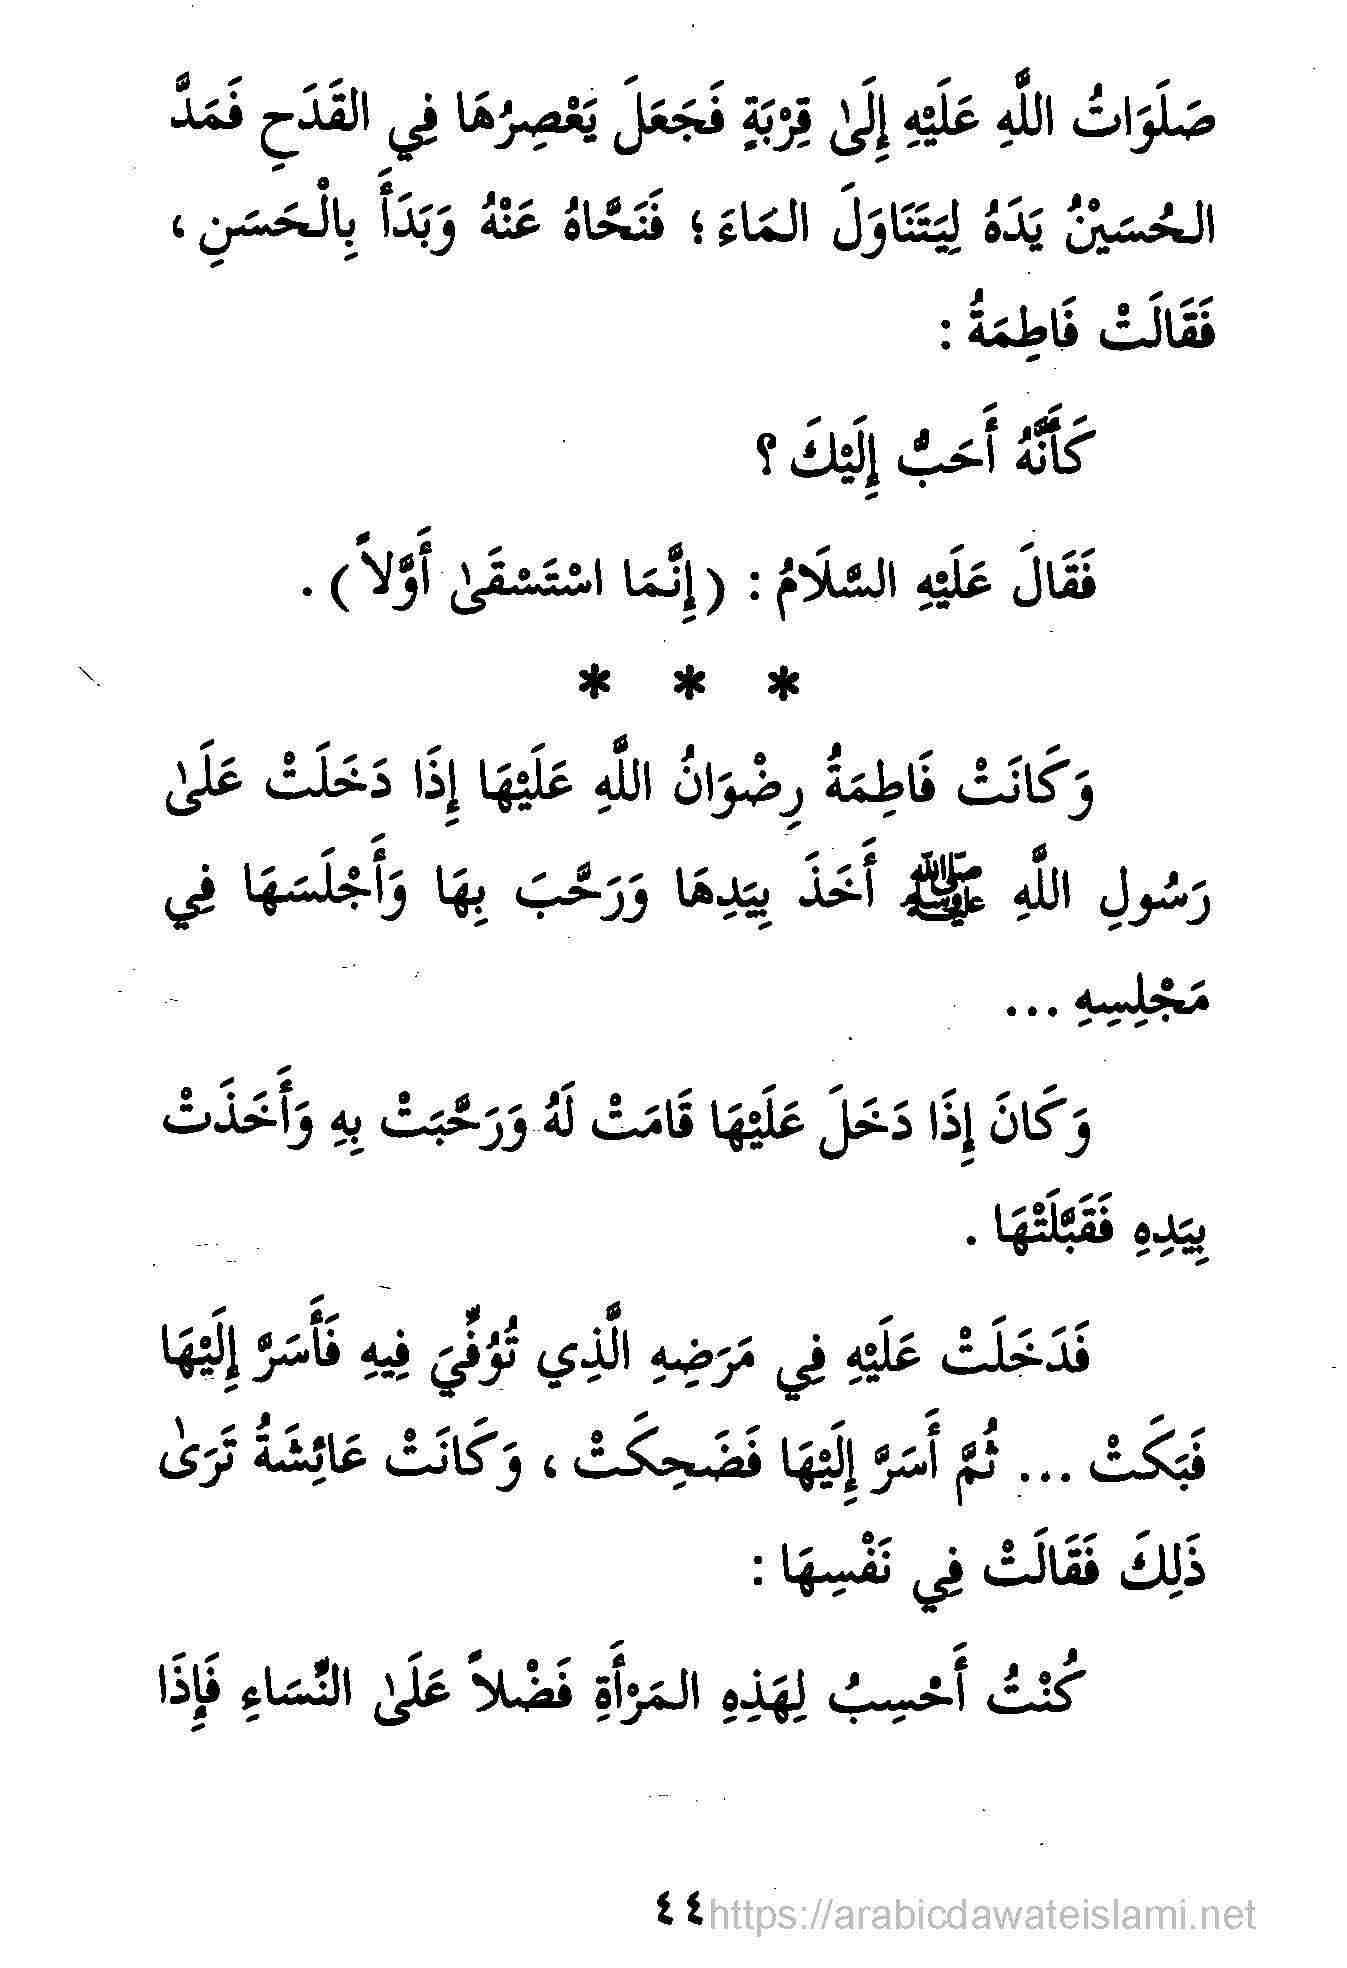 صَلَوَاتُ اللَّهِ عَلَيْهِ إِلَىٰ قِرْبَةٍ فَجَعَلَ يَعْصِرُهَا فِي القَدَحِ فَمَدَّ
الحُسَيْنُ يَدَهُ لِيَتَنَاوَلَ المَاءَ ؛ فَنَحَّاهُ عَنْهُ وَبَدَأَ بِالْحَسَنِ ،
فَقَالَتْ فَاطِمَةُ :
كَأَنَّهُ أَحَبُّ إِلَيْكَ ؟
فَقَالَ عَلَيْهِ السَّلَامُ : (إِنَّمَا اسْتَسْقَىٰ أَوَّلاً) .
* * *
وَكَانَتْ فَاطِمَةُ رِضْوَانُ اللَّهِ عَلَيْهَا إِذَا دَخَلَتْ عَلَىٰ
رَسُولِ اللَّهِ ﷺ أَخَذَ بِيَدِهَا وَرَحَّبَ بِهَا وَأَجْلَسَهَا فِي
مَجْلِسِهِ ...
وَكَانَ إِذَا دَخَلَ عَلَيْهَا قَامَتْ لَهُ وَرَحَّبَتْ بِهِ وَأَخَذَتْ
بِيَدِهِ فَقَبَّلَتْهَا .
فَدَخَلَتْ عَلَيْهِ فِي مَرَضِهِ الَّذِي تُوُفِّيَ فِيهِ فَأَسَرَّ إِلَيْهَا
فَبَكَتْ ... ثُمَّ أَسَرَّ إِلَيْهَا فَضَحِكَتْ ، وَكَانَتْ عَائِشَةُ تَرَىٰ
ذَلِكَ فَقَالَتْ فِي نَفْسِهَا :
كُنْتُ أَحْسِبُ لِهَذِهِ المَرْأَةِ فَضْلاً عَلَىٰ النِّسَاءِ فَإِذَا
٤٤ https://arabicdawateislami.net